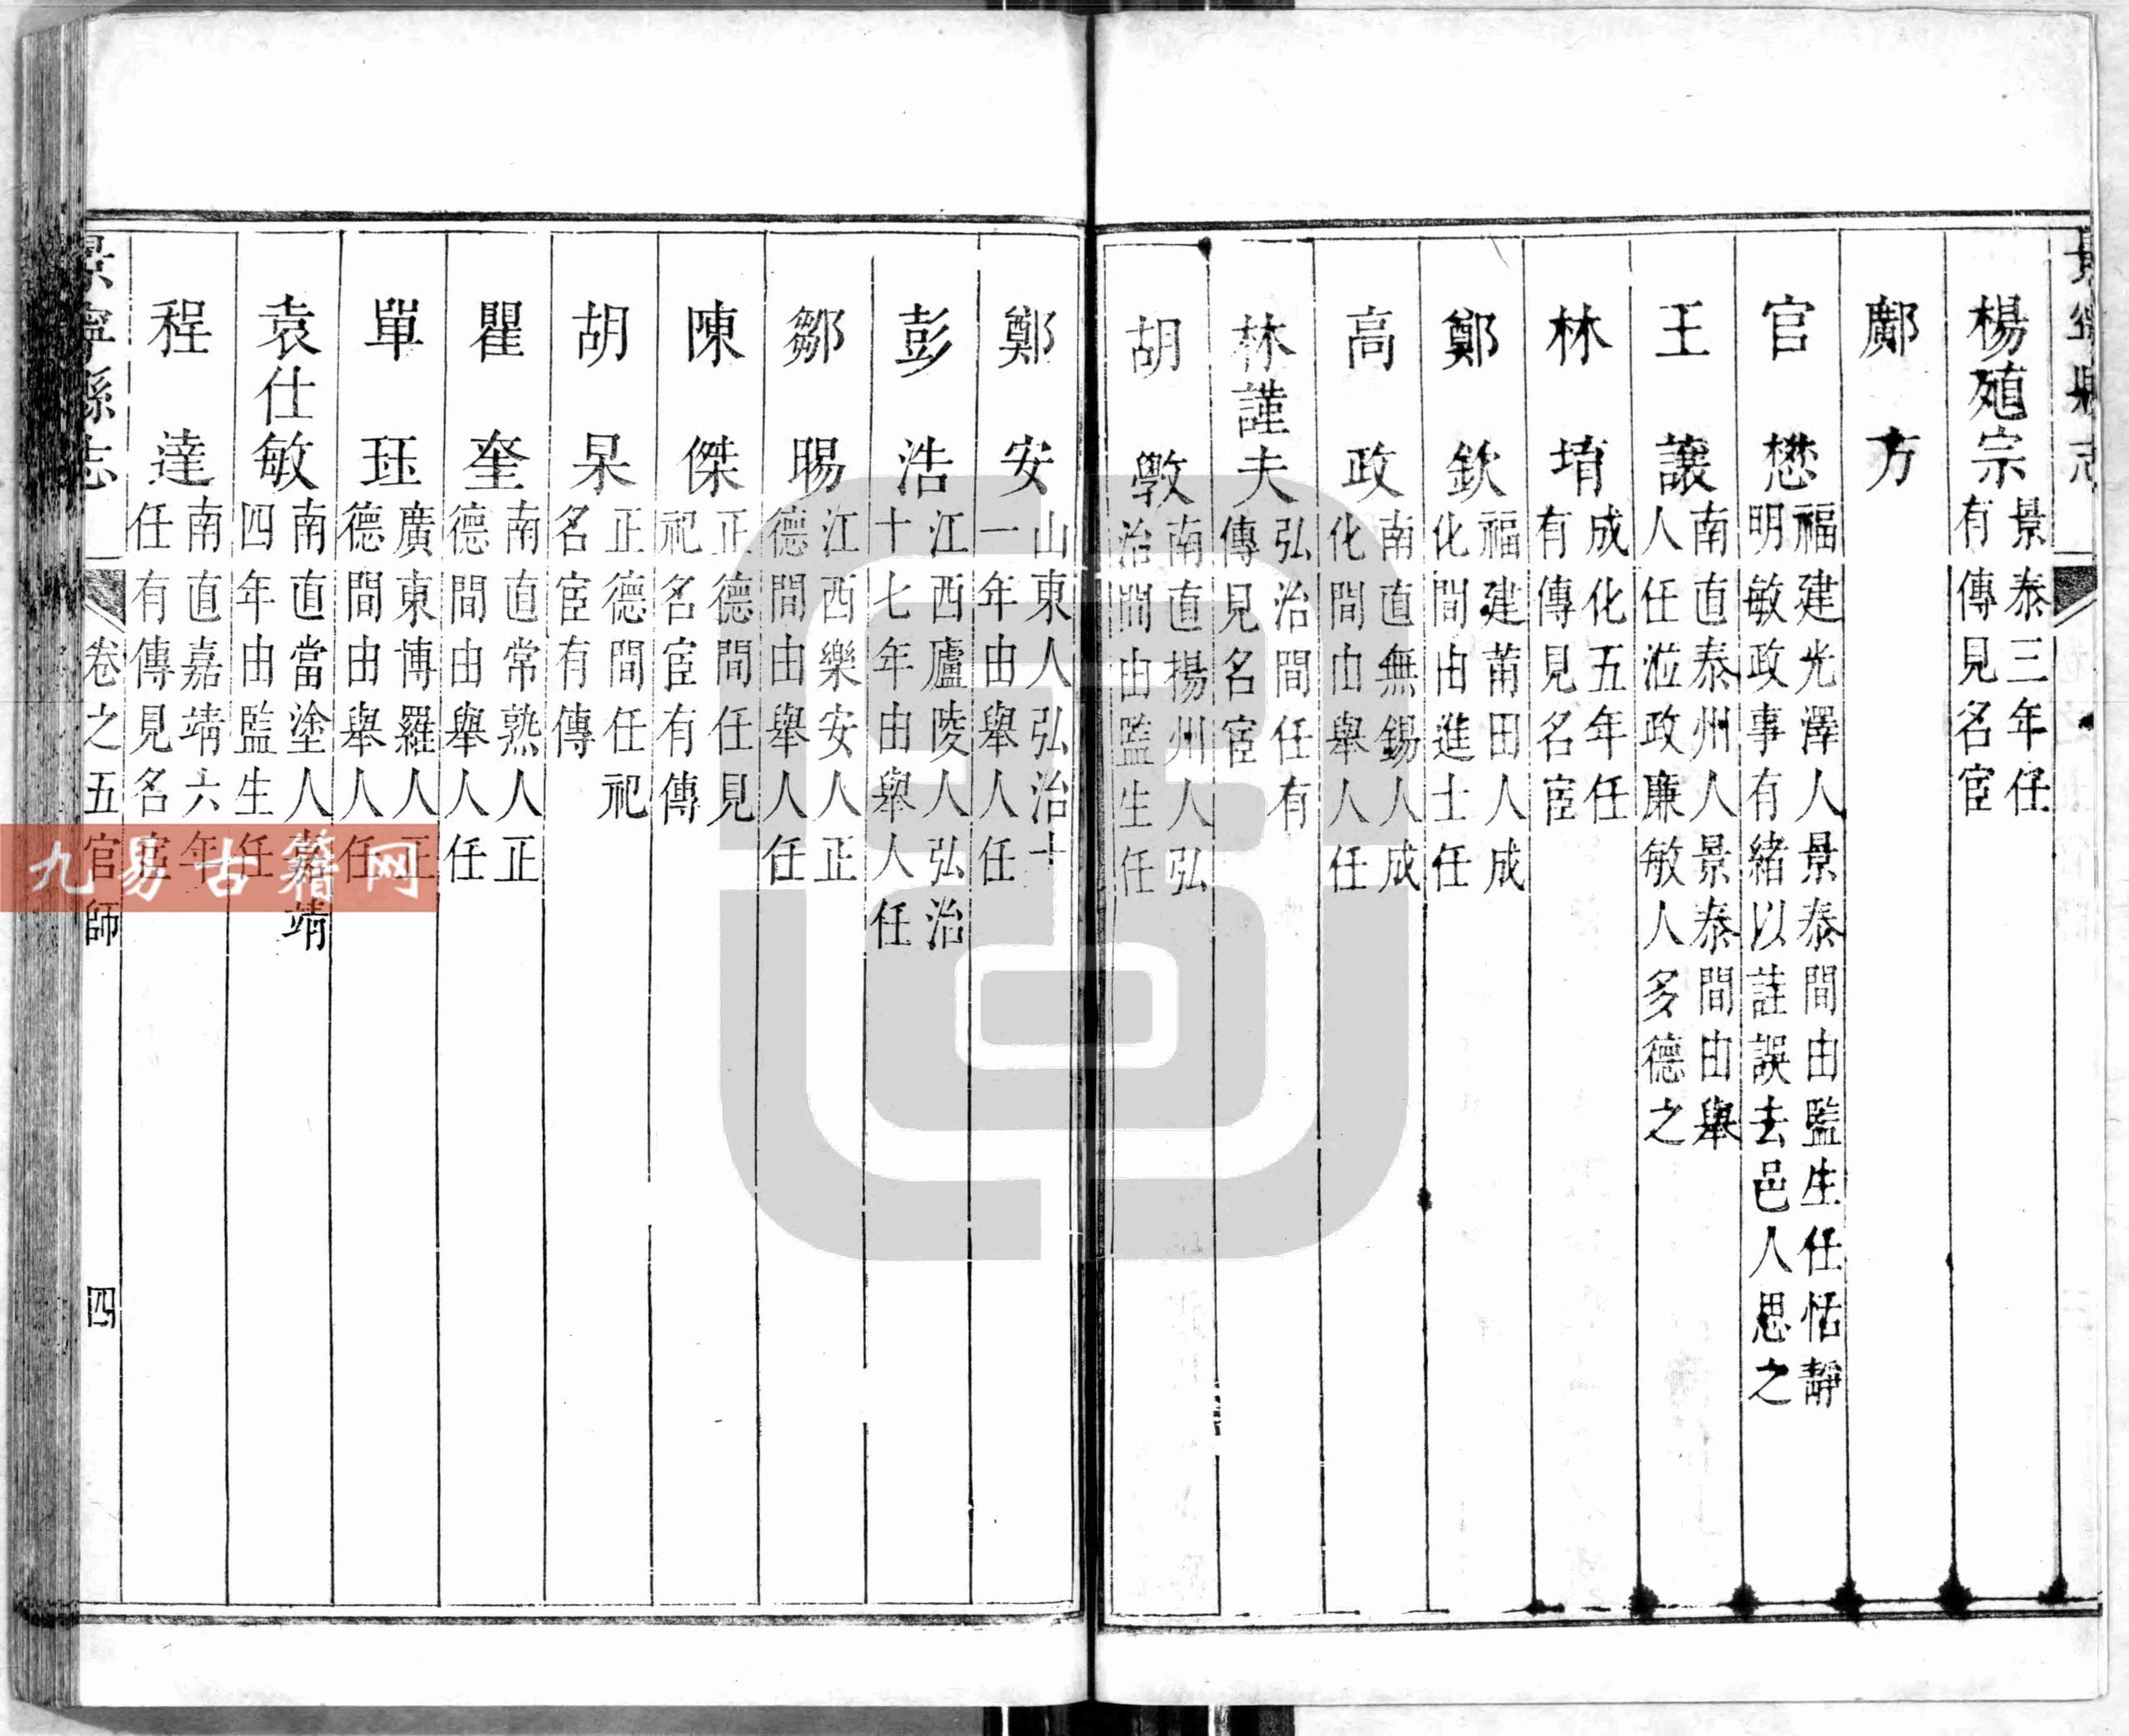 楊殖宗 景泰三年任
有傳見名宦
鄺方
官懋 福建光澤人景泰間由監生任恬靜
明敏政事有緒以註誤去邑人思之
王讓 南直泰州人景泰間由舉
人任涖政廉敏人多德之
林堉 成化五年任
有傳見名宦
鄭欽 福建莆田人成
化間由進士任
高政 南直無錫人成
化間由舉人任
林謹夫 弘治間任有
傳見名宦
胡斆 南直揚州人弘
治間由監生任
鄭安 山東人弘治十
一年由舉人任
彭浩 江西廬陵人弘治
十七年由舉人任
鄒暘 江西樂安人正
德間由舉人任
陳傑 正德間任見
祀名宦有傳
胡杲 正德間任祀
名宦有傳
瞿奎 南直常熟人正
德間由舉人任
單珏 廣東博羅人正
德間由舉人任
袁仕敏 南直當塗人嘉靖
四年由監生任
程達 南直嘉靖六年
任有傳見名宦
景寧縣志 卷之五 官師 四
九易古籍网